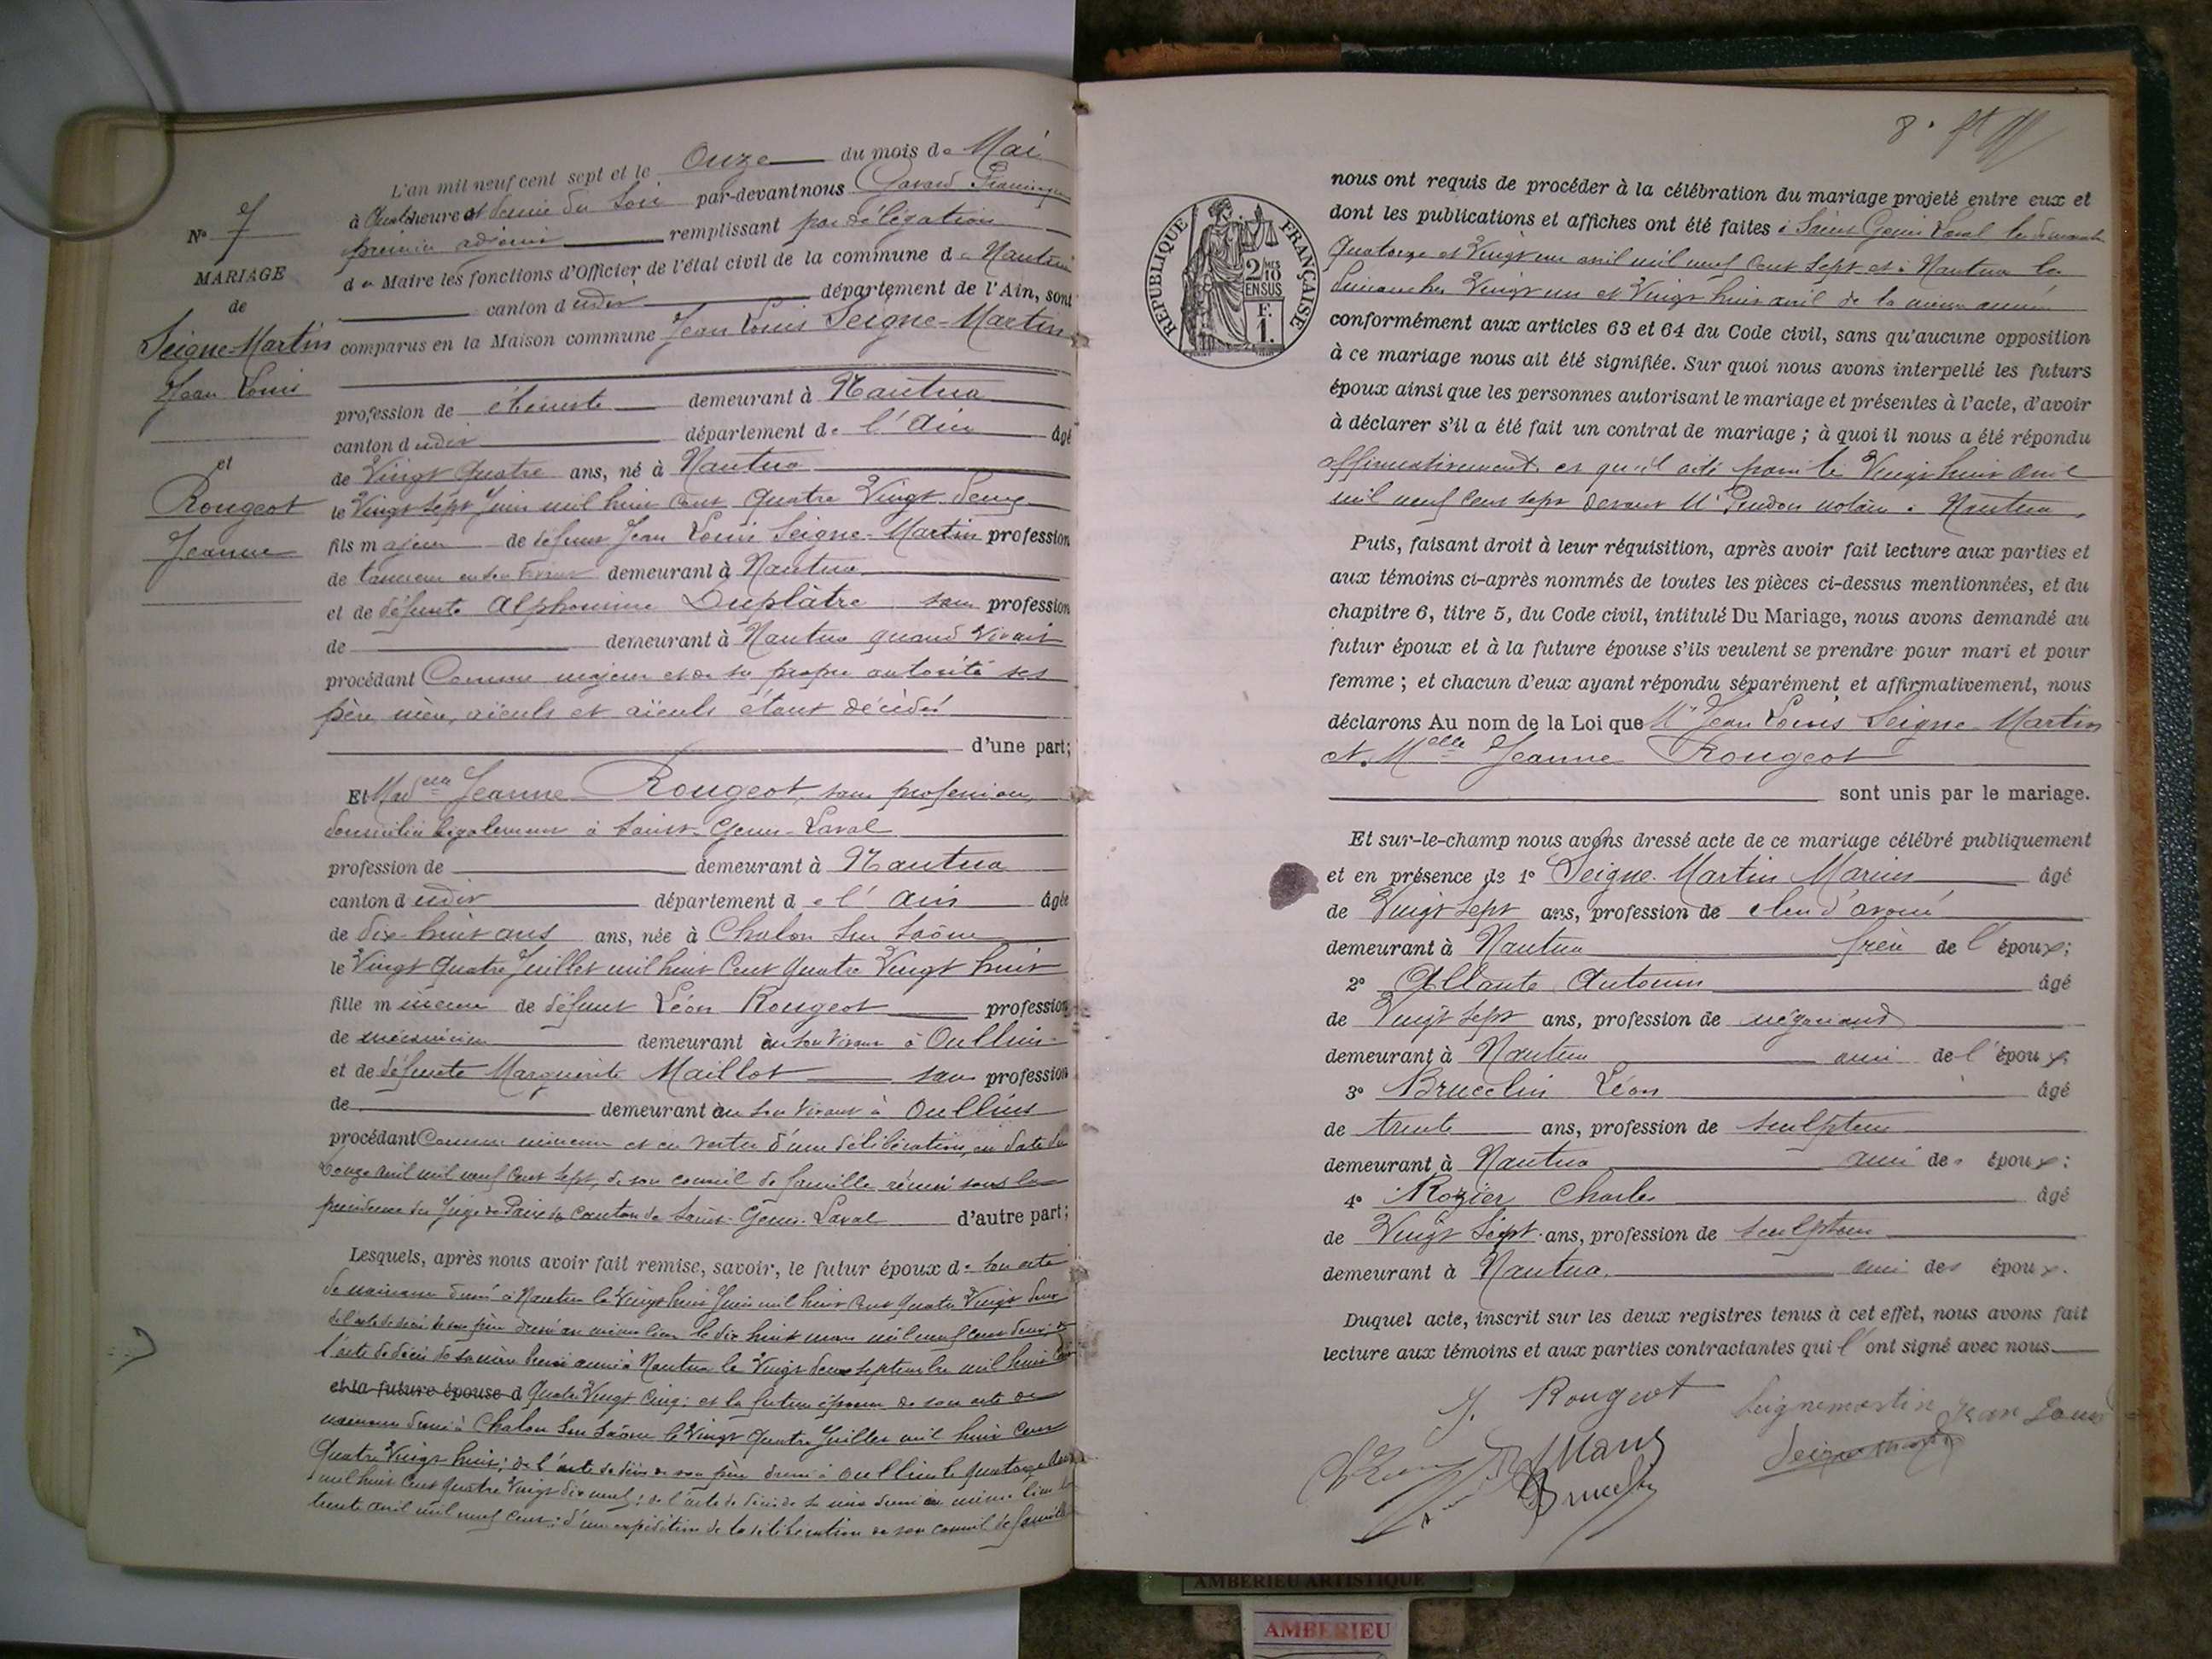 L'an mil neuf cent sept et le Onze du mois de Mai
à Quatre heures et demie du Soir par-devant nous Gavard
premier adjoint remplissant par délégation
du Maire les fonctions d'Officier de l'état civil de la commune de Nantua
canton dudit département de l'Ain, sont
comparus en la Maison commune Jean Louis Seigne-Martin
profession de ébéniste demeurant à Nantua
canton dudit département de l'Ain âgé
de Vingt quatre ans, né à Nantua
le Vingt sept Juin mil huit cent Quatre Vingt Deux
fils majeur de défunt Jean Louis Seigne-Martin profession
de tanneur en son vivant demeurant à Nantua
et de défunte Alphonsine Duplâtre sans profession
de demeurant à Nantua quand vivait
procédant Comme majeur et de sa propre autorité ses
père, mère, aïeuls et aïeules étant décédés
d'une part;
Nº 7
MARIAGE
de
Seigne-Martin
Jean Louis
et
Rougeot
Jeanne
Et Madelle Jeanne Rougeot, sans profession,
domiciliée légalement à Saint-Genis-Laval
profession de demeurant à Nantua
canton dudit département de l'Ain âgée
de dix-huit ans ans, née à Chalon sur Saône
le Vingt quatre Juillet mil huit cent quatre Vingt huit
fille mineure de défunt Léon Rougeot profession
de mécanicien demeurant en son vivant à Oullins
et de défunte Marguerite Maillot sans profession
de demeurant en son vivant à Oullins
procédant Comme mineure et en vertu d'une délibération, en date du
douze avril mil neuf cent sept, de son conseil de famille réuni sous la
présidence du Juge de Paix du canton de Saint-Genis-Laval d'autre part;
Lesquels, après nous avoir fait remise, savoir, le futur époux de son acte
de naissance dressé à Nantua le Vingt huit Juin mil huit cent quatre Vingt deux
de l'acte de décès de son père dressé au même lieu le dix huit mars mil neuf cent deux; de
l'acte de décès de sa mère dressé aussi à Nantua le Vingt deux septembre mil huit cent
et la future épouse d Quatre Vingt cinq; et la future épouse de son acte de
naissance dressé à Chalon sur Saône le Vingt quatre Juillet mil huit cent
Quatre Vingt huit; de l'acte de décès de son père dressé à Oullins le quatorze
mil huit cent quatre Vingt dix neuf; de l'acte de décès de sa mère dressé au même lieu le
trente avril mil neuf cent; d'une expédition de la délibération de son conseil de famille
8
RÉPUBLIQUE FRANÇAISE
2/10
EN SUS
F.
1.
nous ont requis de procéder à la célébration du mariage projeté entre eux et
dont les publications et affiches ont été faites à Saint Genis Laval les dimanches
quatorze et Vingt un avril mil neuf cent sept et à Nantua les
dimanches Vingt un et Vingt huit avril de la même année
conformément aux articles 63 et 64 du Code civil, sans qu'aucune opposition
à ce mariage nous ait été signifiée. Sur quoi nous avons interpellé les futurs
époux ainsi que les personnes autorisant le mariage et présentes à l'acte, d'avoir
à déclarer s'il a été fait un contrat de mariage; à quoi il nous a été répondu
affirmativement et qu'il a été passé le Vingt huit avril
mil neuf cent sept devant Me notaire à Nantua.
Puis, faisant droit à leur réquisition, après avoir fait lecture aux parties et
aux témoins ci-après nommés de toutes les pièces ci-dessus mentionnées, et du
chapitre 6, titre 5, du Code civil, intitulé Du Mariage, nous avons demandé au
futur époux et à la future épouse s'ils veulent se prendre pour mari et pour
femme; et chacun d'eux ayant répondu séparément et affirmativement, nous
déclarons Au nom de la Loi que Mr Jean Louis Seigne-Martin
et Melle Jeanne Rougeot
sont unis par le mariage.
Et sur-le-champ nous avons dressé acte de ce mariage célébré publiquement
et en présence de 1º Seigne-Martin Marius âgé
de Vingt sept ans, profession de clerc d'avoué
demeurant à Nantua frère de l'époux;
2º Allante Antonin âgé
de Vingt sept ans, profession de négociant
demeurant à Nantua ami de l'époux;
3º Brucelin Léon âgé
de trente ans, profession de sculpteur
demeurant à Nantua ami des époux;
4º Rozier Charles âgé
de Vingt Sept ans, profession de sculpteur
demeurant à Nantua ami des époux.
Duquel acte, inscrit sur les deux registres tenus à cet effet, nous avons fait
lecture aux témoins et aux parties contractantes qui l'ont signé avec nous.
J. Rougeot Seignemartin Jean Louis
AMBERIEU ARTISTIQUE
AMBERIEU